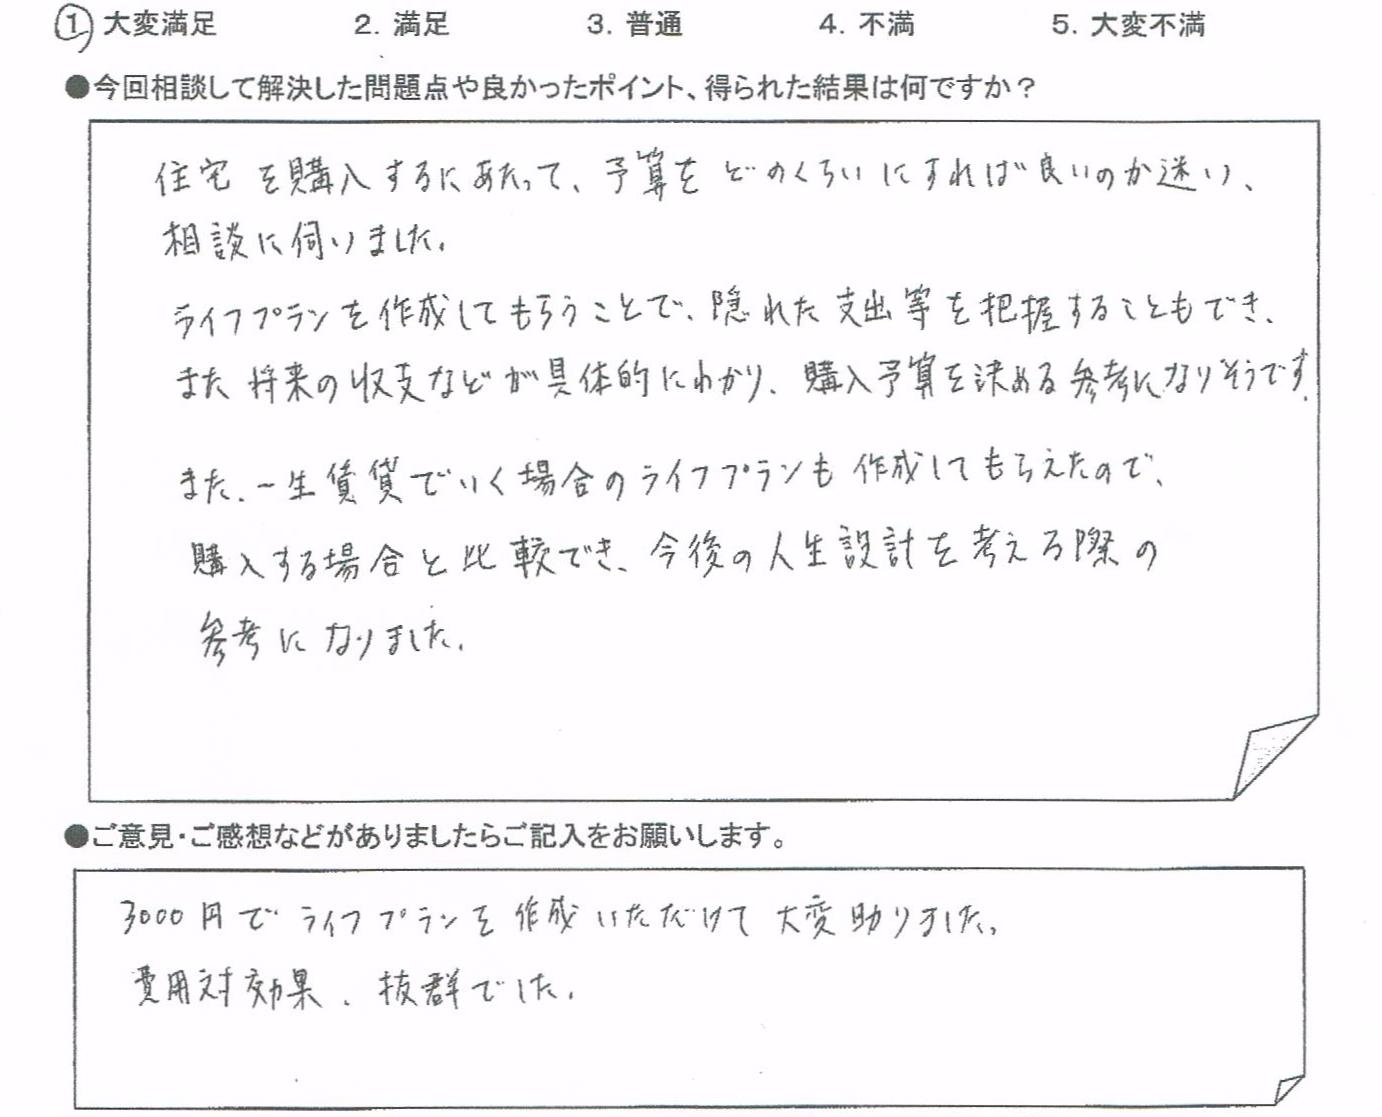 ① 大変満足 2. 満足 3. 普通 4. 不満 5. 大変不満
●今回相談して解決した問題点や良かったポイント、得られた結果は何ですか？
住宅を購入するにあたって、予算をどのくらいにすれば良いのか迷い、
相談に伺いました。
ライフプランを作成してもらうことで、隠れた支出等を把握することもでき、
また将来の収支などが具体的にわかり、購入予算を決める参考になりそうです。
また、一生賃貸でいく場合のライフプランも作成してもらえたので、
購入する場合と比較でき、今後の人生設計を考える際の
参考になりました。
●ご意見・ご感想などがありましたらご記入をお願いします。
3000円でライフプランを作成いただけて大変助りました。
費用対効果、抜群でした。